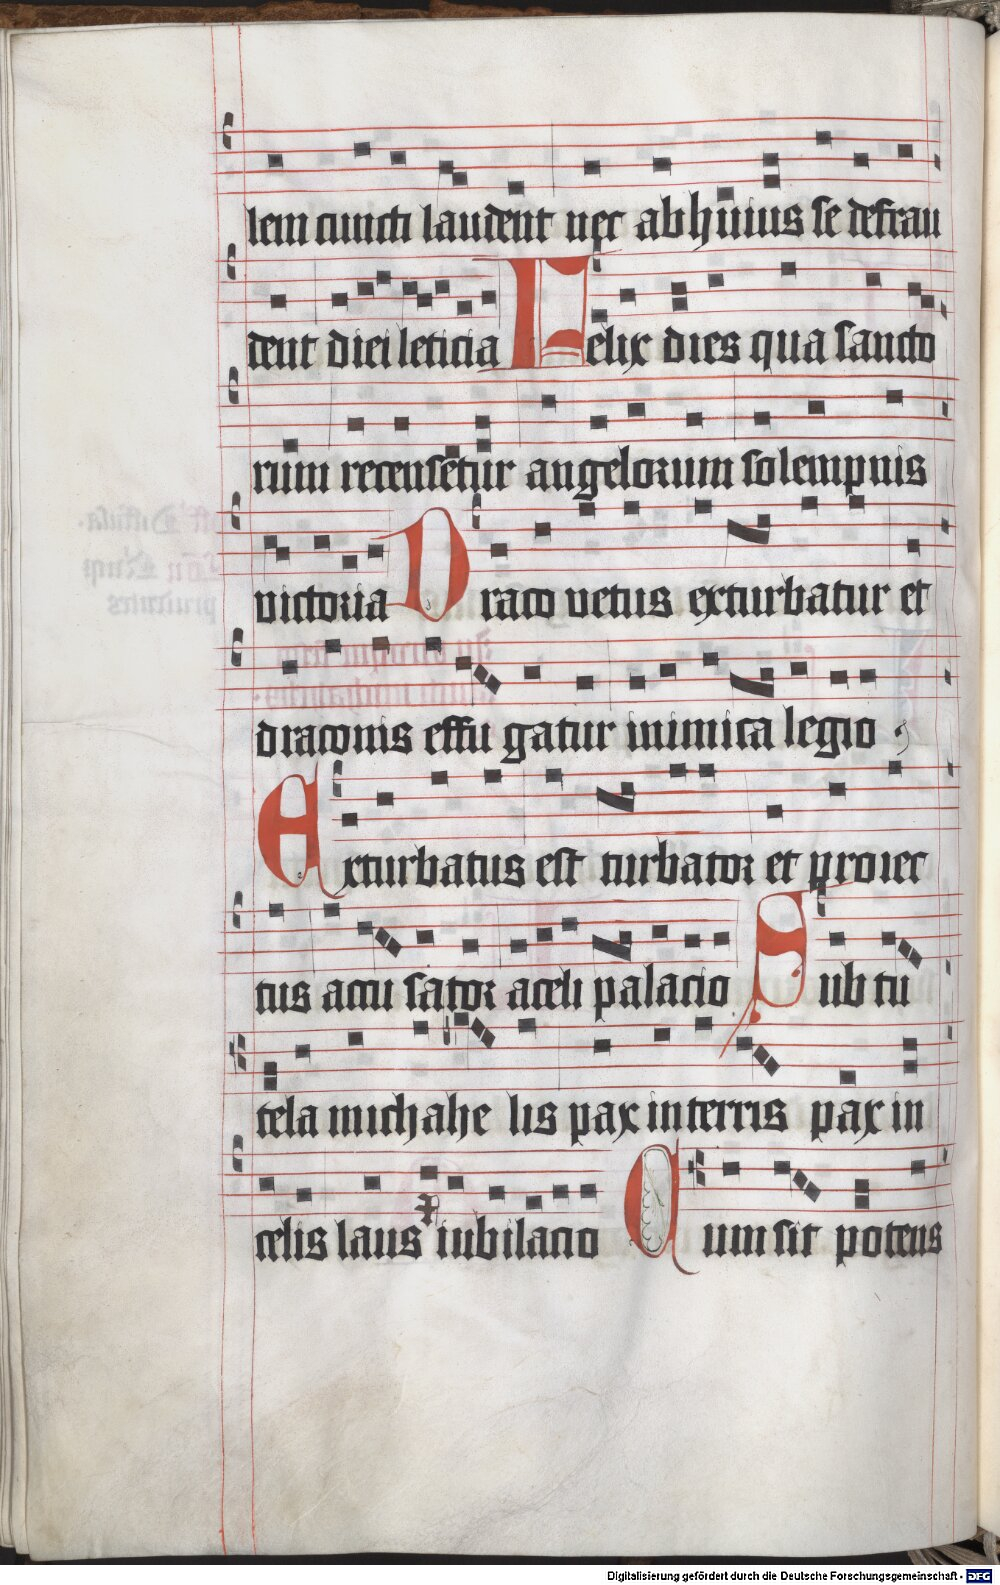 lem cuncti laudent nec ab huius se defrau
dent diei leticia Felix dies qua sancto
rum recensetur angelorum solempnis
victoria Draco vetus exturbatur et
draconis effu gatur inimica legio
Exturbatus est turbator et proiec
tus accu sator a celi palacio Sub tu
tela michahe lis pax in terris pax in
celis laus iubilacio Cum sit potens
Digitalisierung gefördert durch die Deutsche Forschungsgemeinschaft - DFG